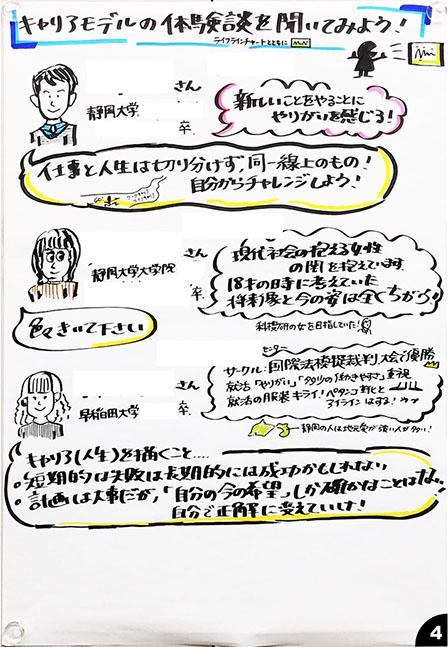 キャリアモデルの体験談を聞いてみよう!
ライフラインチャートとともに
さん
静岡大学
卒
新しいことをやることに
やりがいを感じる!
仕事と人生は切り分けず,同一線上のもの!
自分からチャレンジしよう!
さん
静岡大学大学院
卒
現代社会の抱える女性
の関を抱えています
18才の時に考えていた
将来像と今の姿は全くちがう!
色々きいて下さい
科捜研の女を目指していた!
さん
早稲田大学
卒
サークル:国際法模擬裁判大会で優勝
就活「やりがい」「女性の働きやすさ」重視
就活の服装キライ!ペタンコ靴と
アイラインはする!
静岡の人は地元愛が強い人が多い!
キャリア(人生)を描くこと....
・短期的な失敗は長期的には成功かもしれない
・計画は大事だが,「自分の今の希望」しか確かなことはない
自分で正解に変えていけ!
4